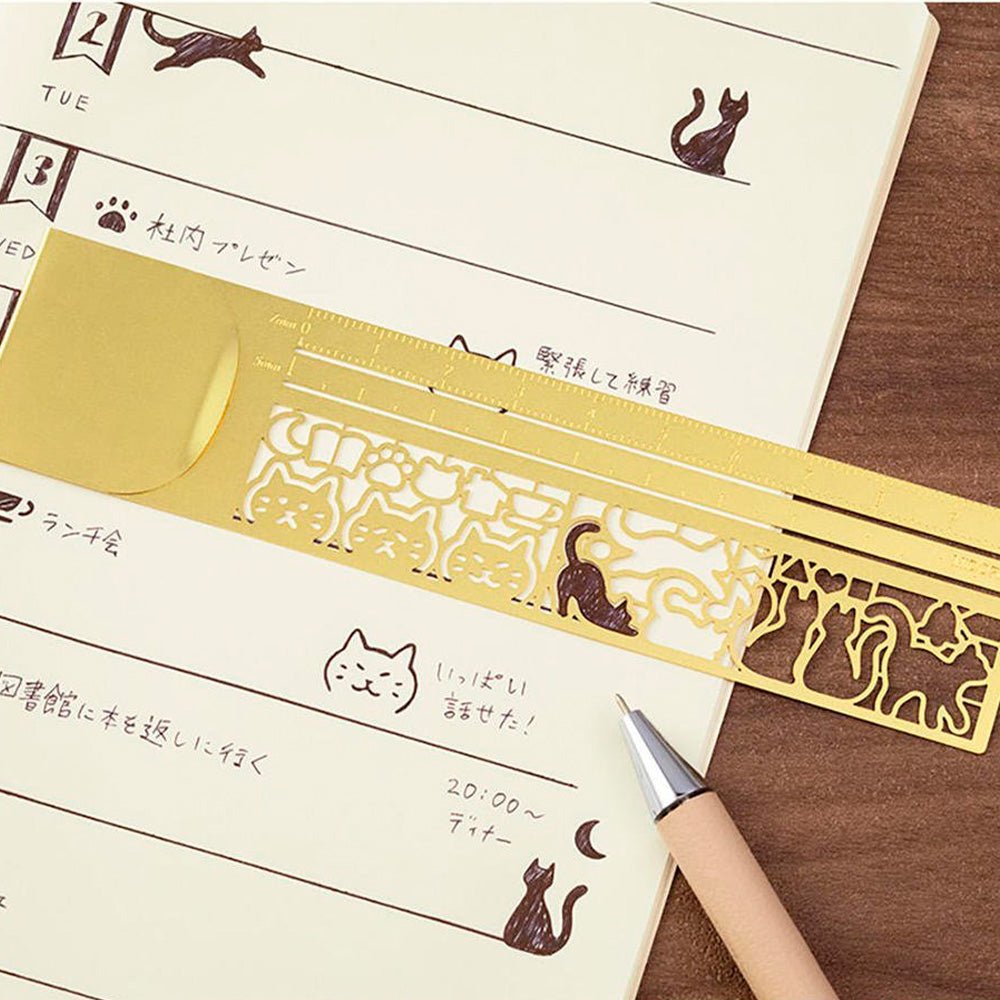 2
TUE
3
社内プレゼン
緊張して練習
2mm 0
5mm
1 2
ランチ会
いっぱい
話せた!
図書館に本を返しに行く
20:00~
ディナー